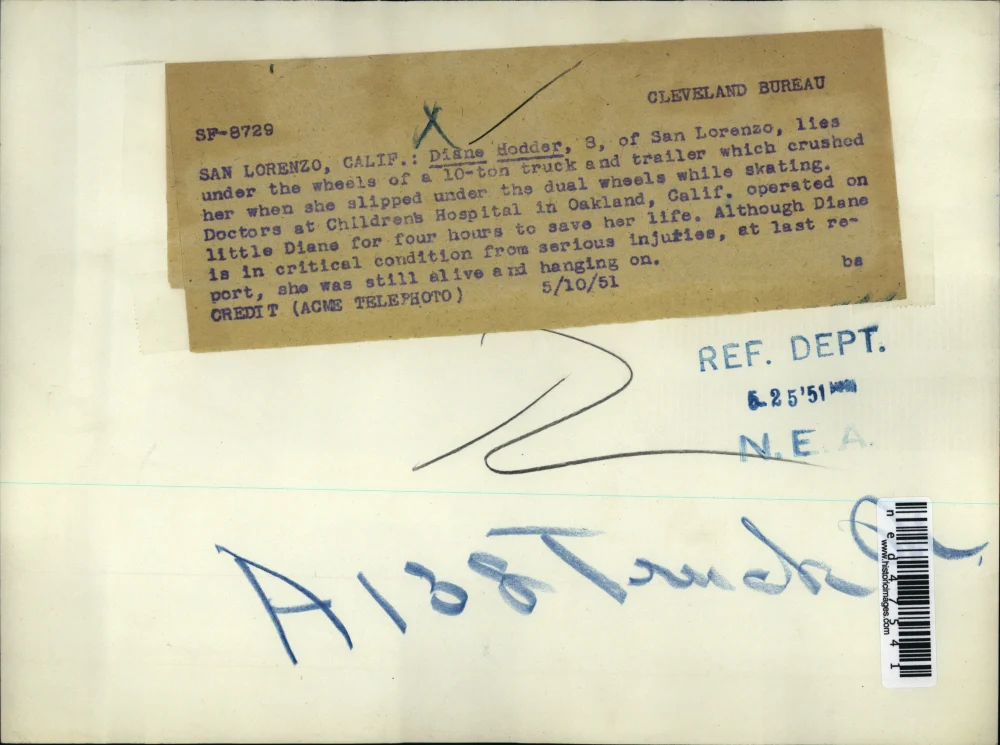 CLEVELAND BUREAU
SF-8729
SAN LORENZO, CALIF.: Diane Hodder, 8, of San Lorenzo, lies
under the wheels of a 10-ton truck and trailer which crushed
her when she slipped under the dual wheels while skating.
Doctors at Children's Hospital in Oakland, Calif. operated on
little Diane for four hours to save her life. Although Diane
is in critical condition from serious injuries, at last re-
port, she was still alive and hanging on.
CREDIT (ACME TELEPHOTO) 5/10/51 ba
REF. DEPT.
5-25'51
N.E.A.
A138 Truck
ned47541
www.historicimages.com